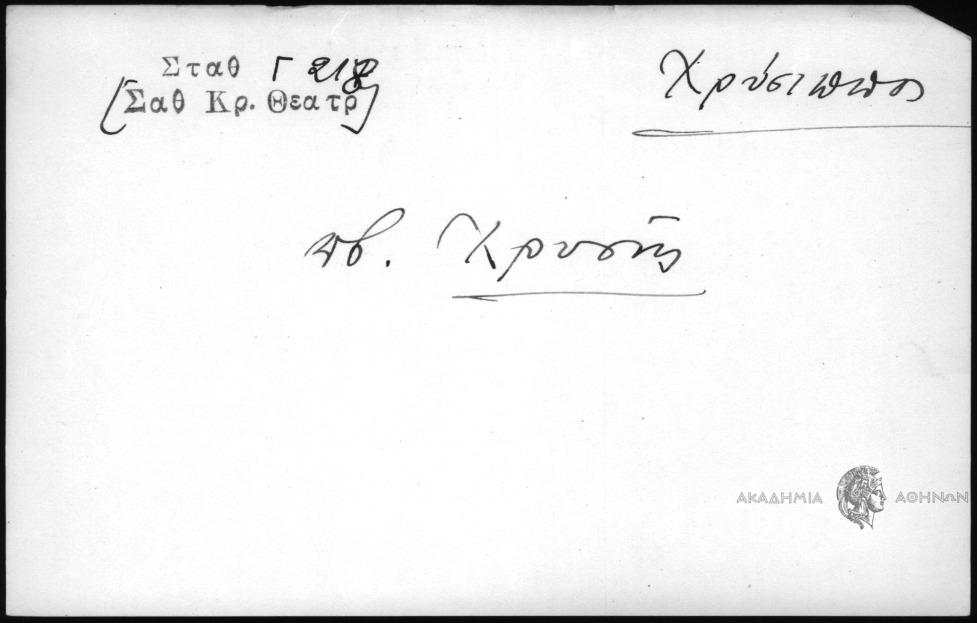 Σταθ Γ 218
[Σαθ Κρ. Θεατρ]
Χρύσιππος
πβ. Χρυσῆς
ΑΚΑΔΗΜΙΑ ΑΘΗΝΩΝ